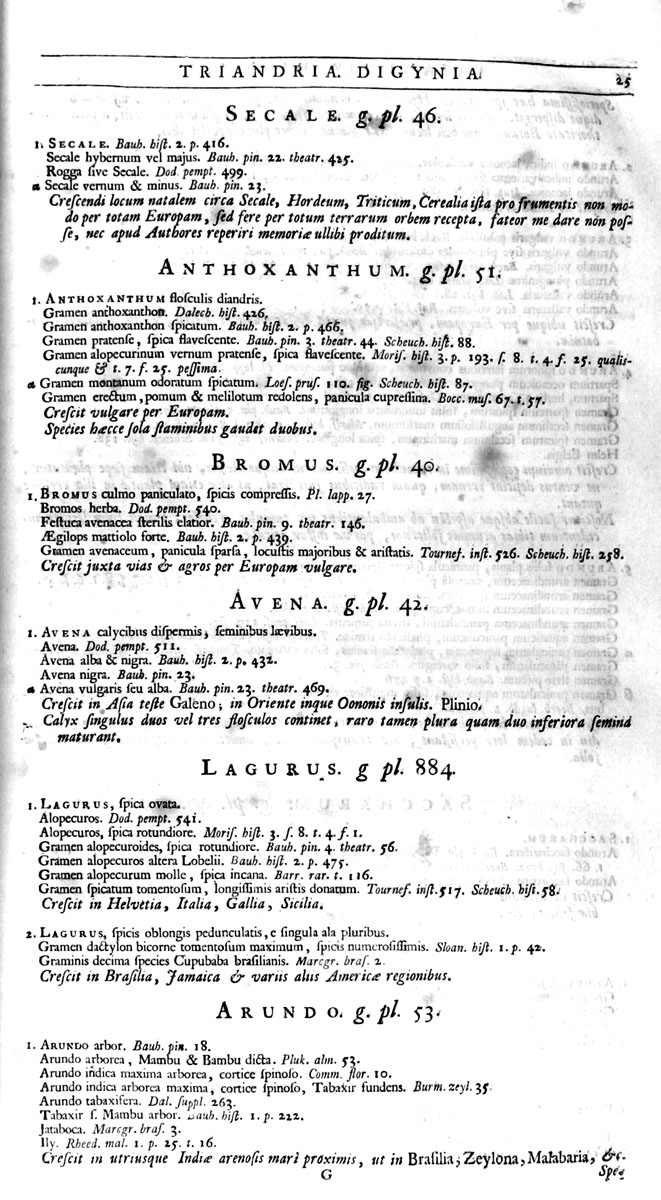 TRIANDRIA. DIGYNIA.
25
SECALE. g. pl. 46.
1. SECALE. Bauh. hiſt. 2. p. 416.
Secale hybernum vel majus. Bauh. pin. 22. theatr. 425.
Rogga ſive Secale. Dod. pempt. 499.
α Secale vernum & minus. Bauh. pin. 23.
Creſcendi locum natalem circa Secale, Hordeum, Triticum, Cerealia iſta pro frumentis non mo-
do per totam Europam, ſed fere per totum terrarum orbem recepta, fateor me dare non poſ-
ſe, nec apud Authores reperiri memoriæ ullibi proditum.
ANTHOXANTHUM. g. pl. 51.
1. ANTHOXANTHUM floſculis diandris.
Gramen anthoxanthon. Dalech. hiſt. 426.
Gramen anthoxanthon ſpicatum. Bauh. hiſt. 2. p. 466.
Gramen pratenſe, ſpica flaveſcente. Bauh. pin. 3. theatr. 44. Scheuch. hiſt. 88.
Gramen alopecurinum vernum pratenſe, ſpica flaveſcente. Moriſ. hiſt. 3. p. 193. ſ. 8. t. 4. f. 25. qualis-
cunque & t. 7. f. 25. peſſima.
α Gramen montanum odoratum ſpicatum. Loeſ. pruſ. 110. fig. Scheuch. hiſt. 87.
Gramen erectum, pomum & melilotum redolens, panicula cupreſſina. Bocc. muſ. 67. t. 57.
Creſcit vulgare per Europam.
Species hæcce ſola ſtaminibus gaudet duobus.
BROMUS. g. pl. 40.
1. BROMUS culmo paniculato, ſpicis compreſſis. Fl. lapp. 27.
Bromos herba. Dod. pempt. 540.
Feſtuca avenacea ſterilis elatior. Bauh. pin. 9. theatr. 146.
Ægilops mattiolo forte. Bauh. hiſt. 2. p. 439.
Gramen avenaceum, panicula ſparſa, locuſtis majoribus & ariſtatis. Tournef. inſt. 526. Scheuch. hiſt. 258.
Creſcit juxta vias & agros per Europam vulgare.
AVENA. g. pl. 42.
1. AVENA calycibus diſpermis, ſeminibus lævibus.
Avena. Dod. pempt. 511.
Avena alba & nigra. Bauh. hiſt. 2. p. 432.
Avena nigra. Bauh. pin. 23.
α Avena vulgaris ſeu alba. Bauh. pin. 23. theatr. 469.
Creſcit in Aſia teſte Galeno; in Oriente inque Oononis inſulis. Plinio.
Calyx ſingulus duos vel tres floſculos continet, raro tamen plura quam duo inferiora ſemina
maturant.
LAGURUS. g pl. 884.
1. LAGURUS, ſpica ovata.
Alopecuros. Dod. pempt. 541.
Alopecuros, ſpica rotundiore. Moriſ. hiſt. 3. ſ. 8. t. 4. f. 1.
Gramen alopecuroides, ſpica rotundiore. Bauh. pin. 4. theatr. 56.
Gramen alopecuros altera Lobelii. Bauh. hiſt. 2. p. 475.
Gramen alopecurum molle, ſpica incana. Barr. rar. t. 116.
Gramen ſpicatum tomentoſum, longiſſimis ariſtis donatum. Tournef. inſt. 517. Scheuch. hiſt. 58.
Creſcit in Helvetia, Italia, Gallia, Sicilia.
2. LAGURUS, ſpicis oblongis pedunculatis, e ſingula ala pluribus.
Gramen dactylon bicorne tomentoſum maximum, ſpicis numeroſiſſimis. Sloan. hiſt. 1. p. 42.
Graminis decima ſpecies Cupubaba braſilianis. Marcgr. braſ. 2.
Creſcit in Braſilia, Jamaica & variis aliis Americæ regionibus.
ARUNDO. g. pl. 53.
1. ARUNDO arbor. Bauh. pin. 18.
Arundo arborea, Mambu & Bambu dicta. Pluk. alm. 53.
Arundo indica maxima arborea, cortice ſpinoſo. Comm. flor. 10.
Arundo indica arborea maxima, cortice ſpinoſo, Tabaxir fundens. Burm. zeyl. 35.
Arundo tabaxifera. Dal. ſuppl. 263.
Tabaxir ſ. Mambu arbor. Bauh. hiſt. 1. p. 222.
Jataboca. Marcgr. braſ. 3.
Ily. Rheed. mal. 1. p. 25. t. 16.
Creſcit in utriusque Indiæ arenoſis mari proximis, ut in Braſilia, Zeylona, Malabaria, &c.
G
Spe-